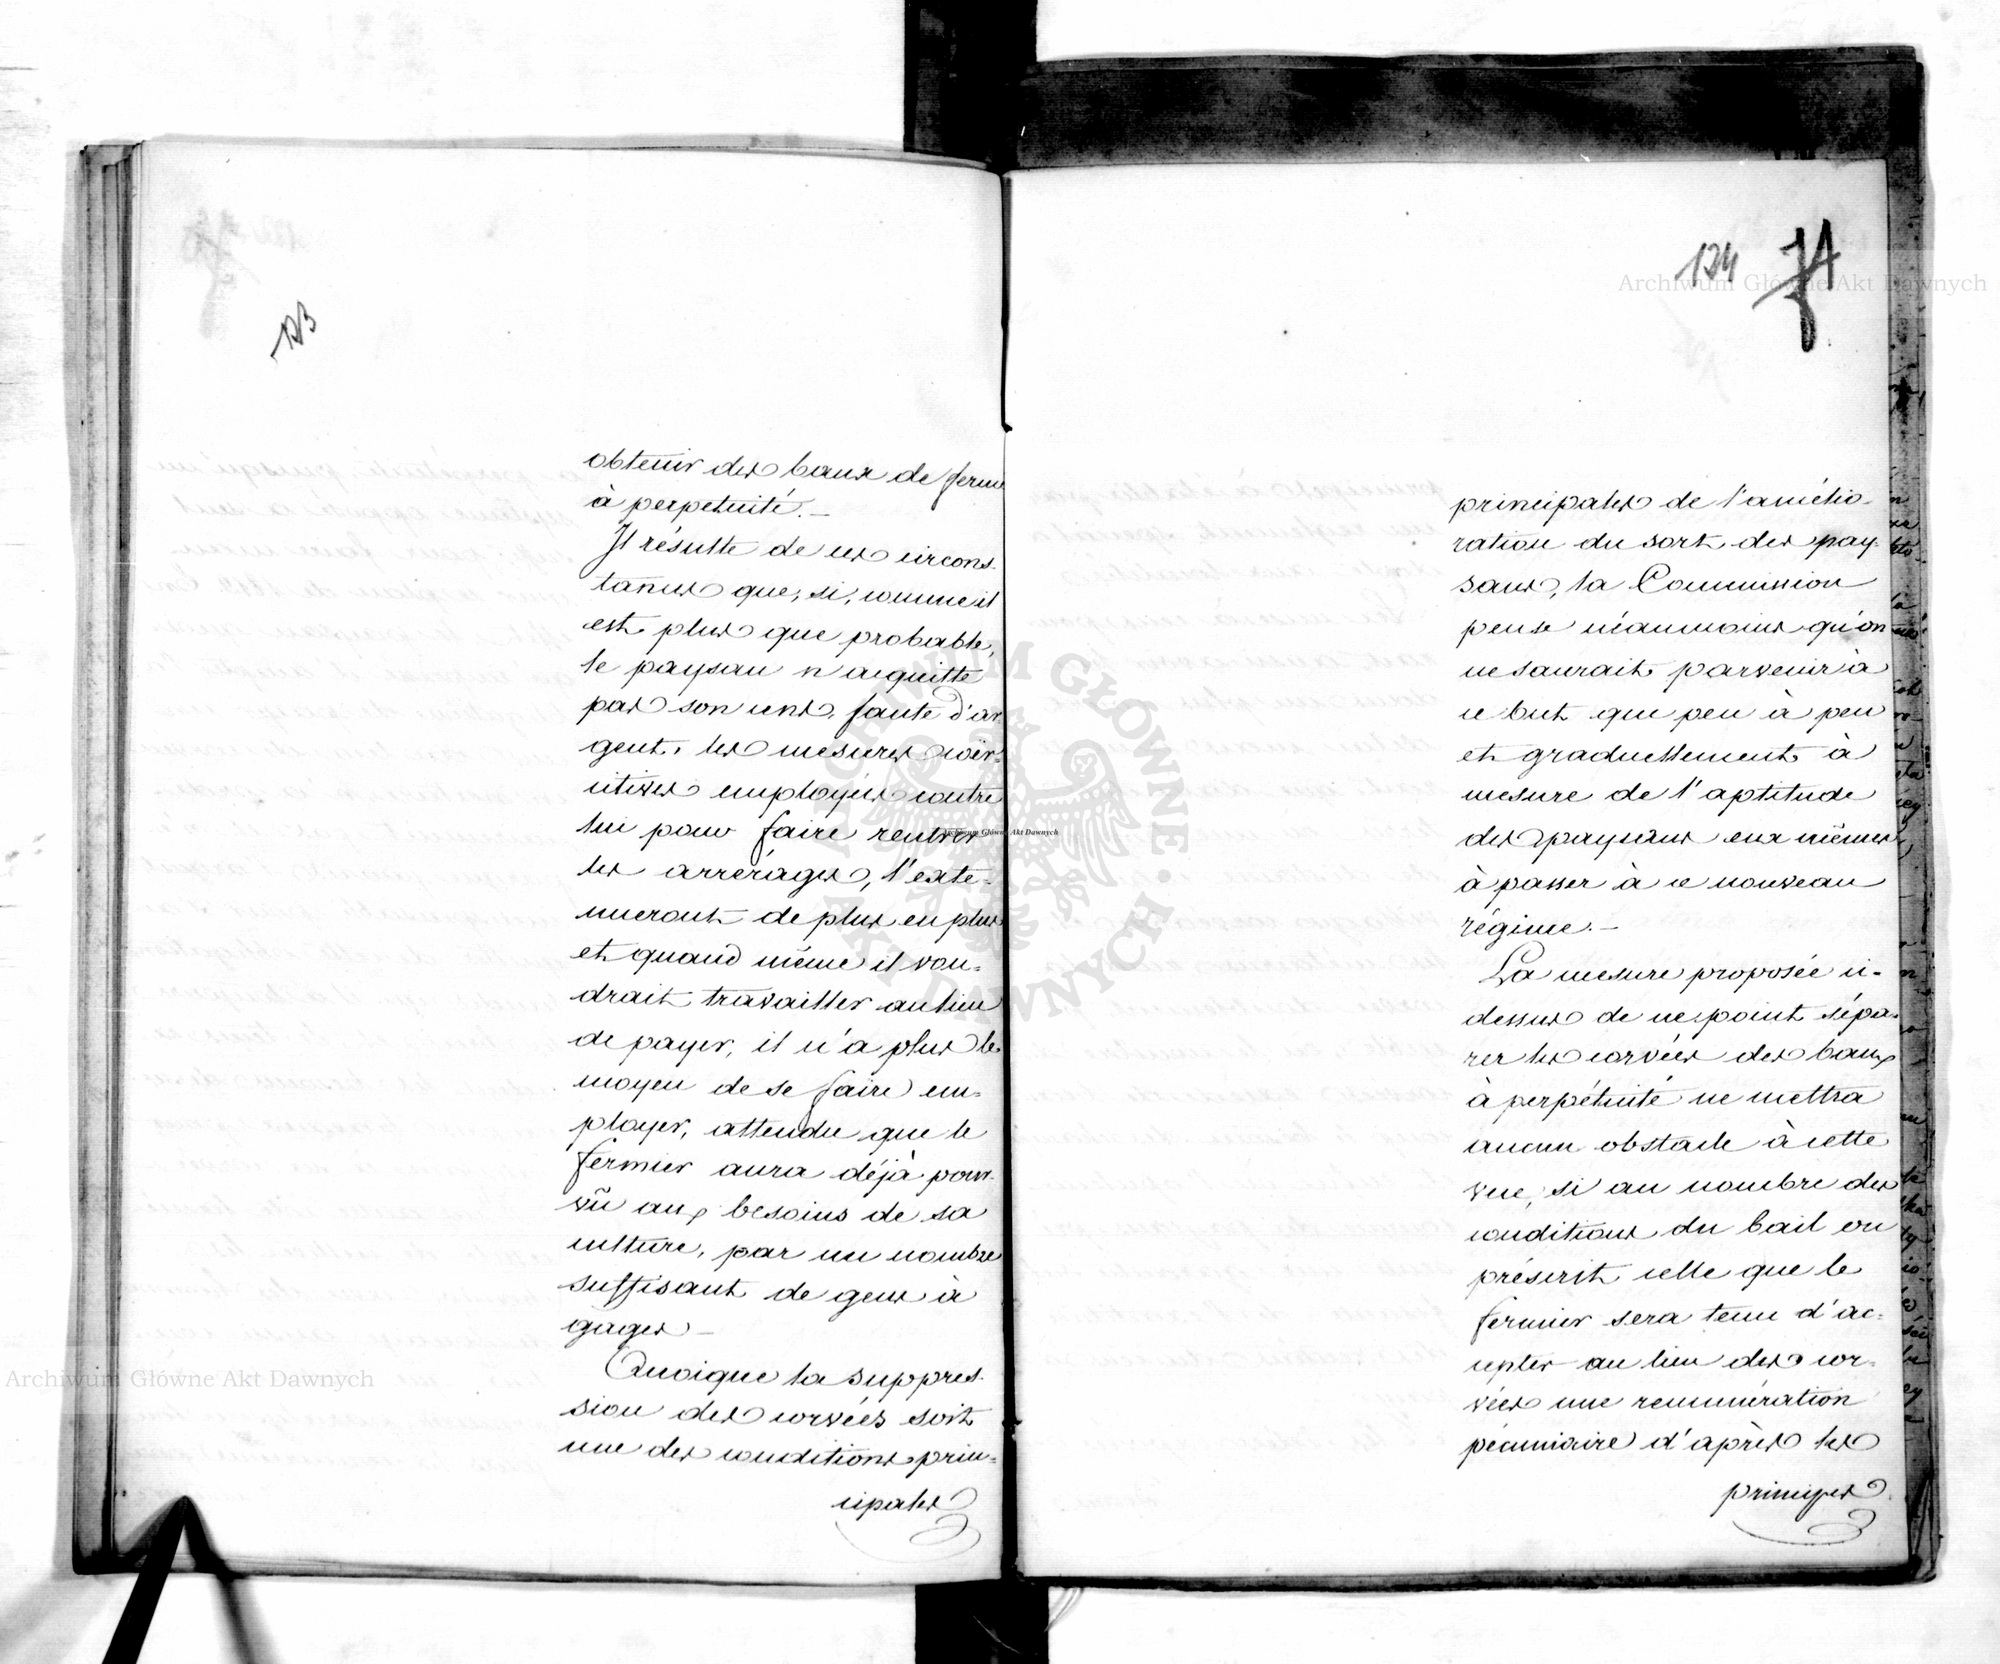 123
obtenir des baux de ferme
à perpetuité. —
Il résulte de ces circons-
tances que, si, comme il
est plus que probable,
le paysan n'acquitte
pas son cens, faute d'ar-
gent, les mesures coër-
citives employées contre
lui pour faire rentrer
les arrérages, l'exte-
nueront de plus en plus
et quand même il vou-
drait travailler au lieu
de payer, il n'a plus le
moyen de se faire em-
ployer, attendu que le
fermier aura déjà pour-
vû aux besoins de sa
culture, par un nombre
suffisant de gens à
gages —
Quoique la suppres-
sion des corvées soit
une des conditions prin-
cipales
124 71
principales de l'amélio-
ration du sort des pay-
sans, la Commission
pense néanmoins qu'on
ne saurait parvenir à
ce but que peu à peu
et graduellement à
mesure de l'aptitude
des paysans eux mêmes
à passer à ce nouveau
régime. —
La mesure proposée ci-
dessus de ne point sépa-
rer les corvées des baux
à perpétuité ne mettra
aucun obstacle à cette
vue, si au nombre des
conditions du bail on
préscrit celle que le
fermier sera tenu d'ac-
cepter au lieu des cor-
vées une remunération
pécuniaire d'après les
principes
Archiwum Główne Akt Dawnych
Archiwum Główne Akt Dawnych
Archiwum Główne Akt Dawnych
ARCHIWUM GŁÓWNE AKT DAWNYCH